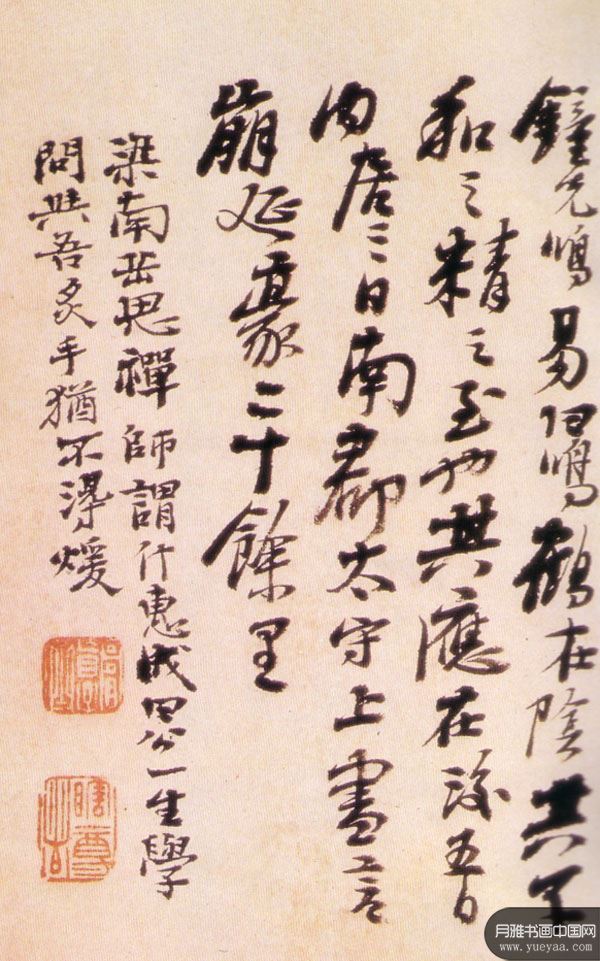 鐘先鳴易曰鳴鶴在陰其子
和之精之至也其應在後五日
內居三日南郡太守上書言
崩延袤二十餘里
梁南岳思禪師謂什惠成曰公一生學
問與吾炙手猶不得煖
瞎尊者
月雅书画中国网
www.yueyaa.com